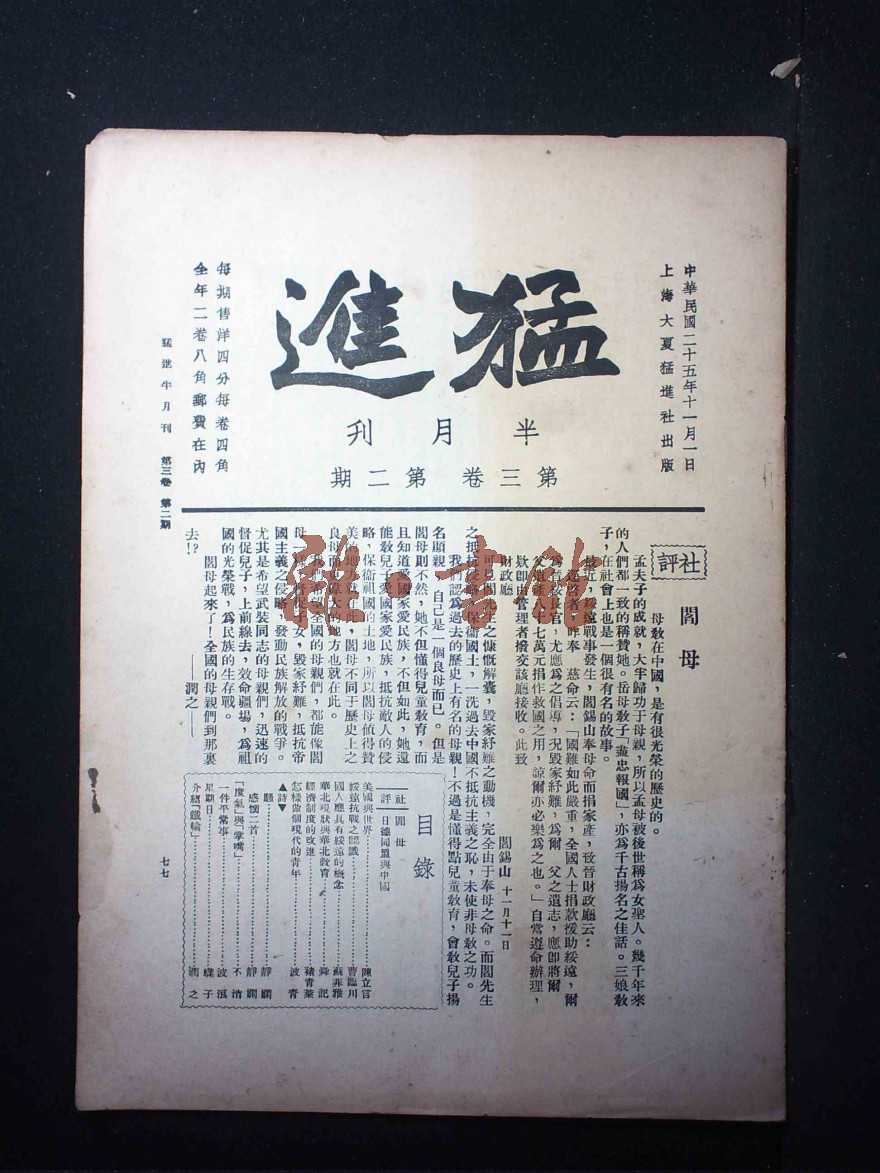 中華民國二十五年十一月一日
上海大夏猛進社出版
猛進
半月刊
第三卷 第二期
每期售洋四分每卷四角
全年二卷八角郵費在內
猛進半月刊 第三卷 第二期
社評
閻母
母教在中國，是有很光榮的歷史的。
孟夫子的成就，大半歸功于母親，所以孟母被後世稱為女聖人。幾千年來
的人們都一致的稱贊她。岳母教子「盡忠報國」，亦為千古揚名之佳話。三娘教
子，在社會上也是一個很有名的故事。
最近，綏遠戰事發生，閻錫山奉母命而捐家產，致晉財政廳云：
逕啓者，昨奉 慈命云：「國難如此嚴重，全國人士捐款援助綏遠，爾
為晉綏長官，尤應為之倡導，況毀家紓難，為爾 父之遺志，應卽將爾
父遺產八十七萬元捐作救國之用，諒爾亦必樂為之也。」自當遵命辦理，
欵卽由管理者撥交該廳接收。此致
財政廳
閻錫山 十一月十一日
可見閻先生之慷慨解囊，毀家紓難之動機，完全由于奉母之命。而閻先生
之抵抗侵略，保衛國土，一洗過去中國不抵抗主義之恥，未使非母教之功。
我們認為過去的歷史上有名的母親！不過是懂得點兒童教育，會教兒子揚
名顯親，自己是一個良母而已。但是
閻母則不然，她不但懂得兒童教育，而
且知道愛國家愛民族，不但如此，她還
能教兒子愛國家愛民族，抵抗敵人的侵
略，保衛祖國的土地，所以閻母值得贊
美的地方就在此，閻母不同于歷史上之
良母而偉大的地方也就在此。
我們希望全國的母親們，都能像閻
母一樣，督促子女，毀家紓難，抵抗帝
國主義之侵略，發動民族解放的戰爭。
尤其是希望武裝同志的母親們，迅速的
督促兒子，上前線去，效命疆場，為祖
國的光榮戰，為民族的生存戰。
閻母起來了！全國的母親們到那裏
去！？
——潤之——
目錄
社評
閻母
日德同盟與中國
美國與世界……陳立言
綏遠抗戰之認識……曹臨川
國人應具有綏遠的概念……蘇菲雅
華北現狀與華北教育……鋒記
經濟制度的改進……豬青萊
怎樣做個現代的青年……波青
▲詩▼
騷……靜嫻
感懷二首……靜嫻
「度氣」與「掌嘴」……不消
一件平常事……波濱
星期日……蝶子
介紹「鐵輪」……潤之
七七